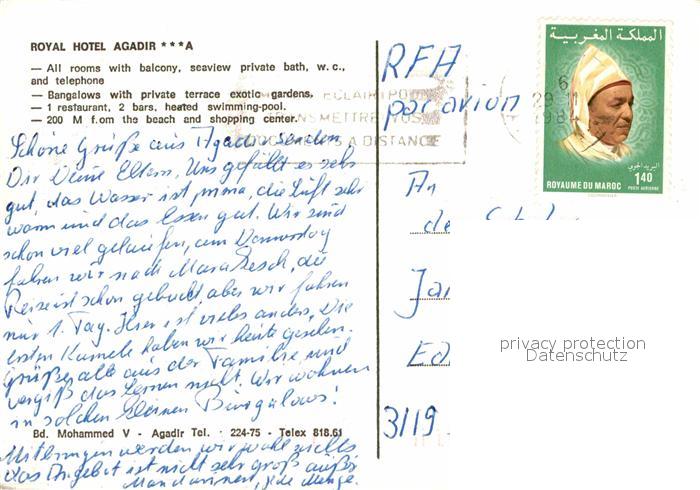 ROYAL HOTEL AGADIR ***A
— All rooms with balcony, seaview private bath, w.c.,
and telephone
— Bangalows with private terrace exotic gardens.
— 1 restaurant, 2 bars, heated swimming-pool.
— 200 M f.om the beach and shopping center.
Schöne Grüße aus Agadir senden
Dir Deine Eltern. Uns gefällt es sehr
gut, das Wasser ist prima, die Luft sehr
warm und das Essen gut. Wir sind
schon viel gelaufen, am Donnerstag
fahren wir nach Marakesch, die
Reise ist schon gebucht, aber wir fahren
nur 1. Tag. Hier ist vieles anders. Die
ersten Kamele haben wir heute gesehen.
Grüße alle aus der Familie und
vergiß das Lernen nicht. Wir wohnen
in solchen kleinen Bungalows!
Bd. Mohammed V - Agadir Tel. : 224-75 - Telex 818.61
Mitbringen werden wir wohl nichts
das Angebot ist nicht sehr groß außer
Mandarinen, jede Menge.
RFA
par avion
ECLAIR POUR
TRANSMETTRE VOS
DOCUMENTS A DISTANCE
6
29 11
1984
المملكة المغربية
البريد الجوي
1,40
ROYAUME DU MAROC
POSTE AERIENNE
An
de
Jan
Ed
3119
privacy protection
Datenschutz